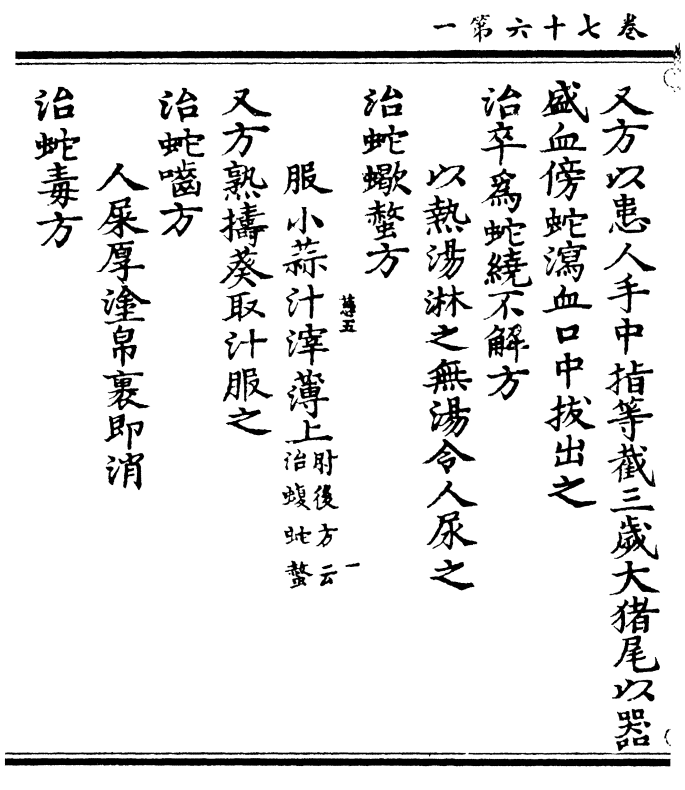 卷七十六第一
又方以患人手中指等截三歲大猪尾以器
盛血傍蛇瀉血口中拔出之
治卒為蛇繞不解方
以熱湯淋之無湯令人尿之
治蛇蠍螫方
服小蒜汁滓薄上肘後方云治蝮蛇螫
又方熟擣葵取汁服之
治蛇嚙方
人屎厚塗帛裹即消
治蛇毒方